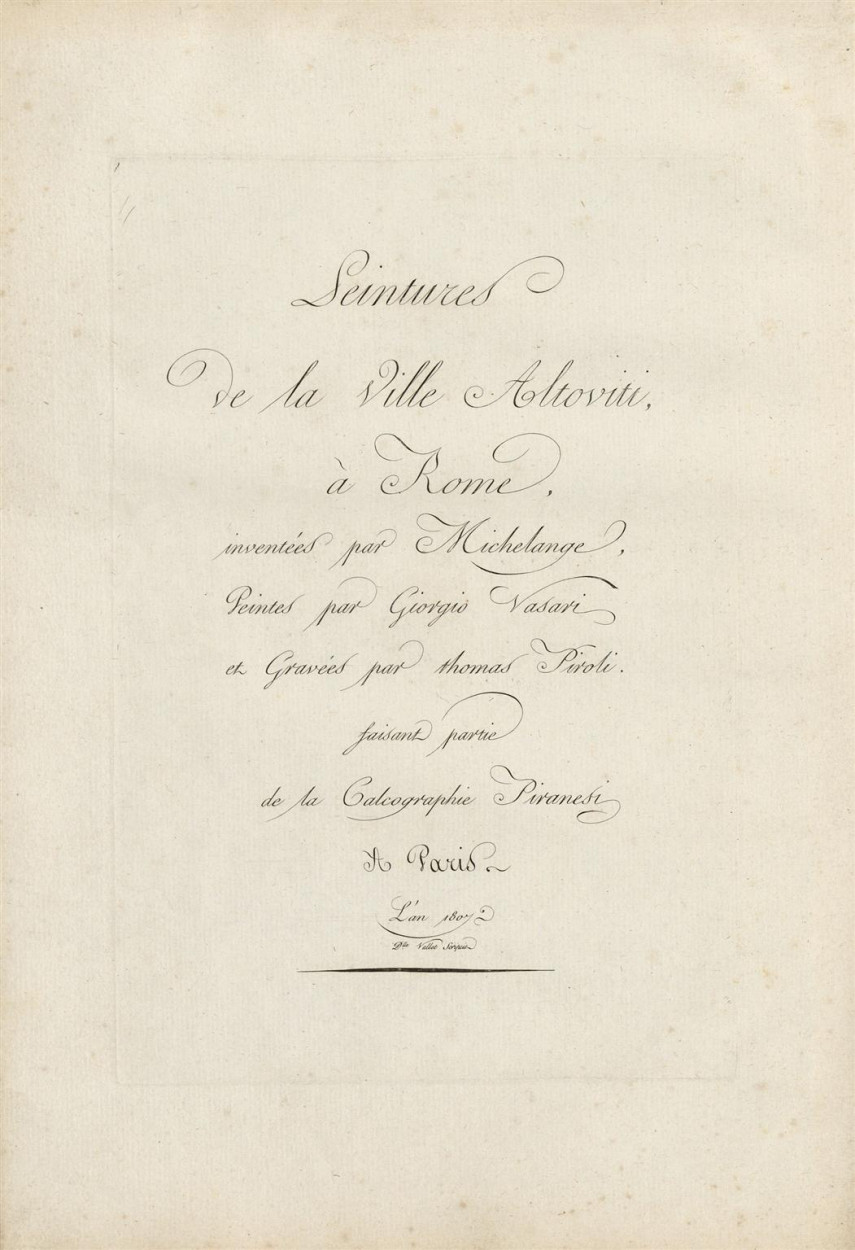 Peintures
de la Ville Altoviti,
à Rome,
inventées par Michelange,
Peintes par Giorgio Vasari
et Gravées par thomas Piroli.
faisant partie
de la Calcographie Piranesi
A Paris
L'an 1807
Dlle Vallet Scripsit